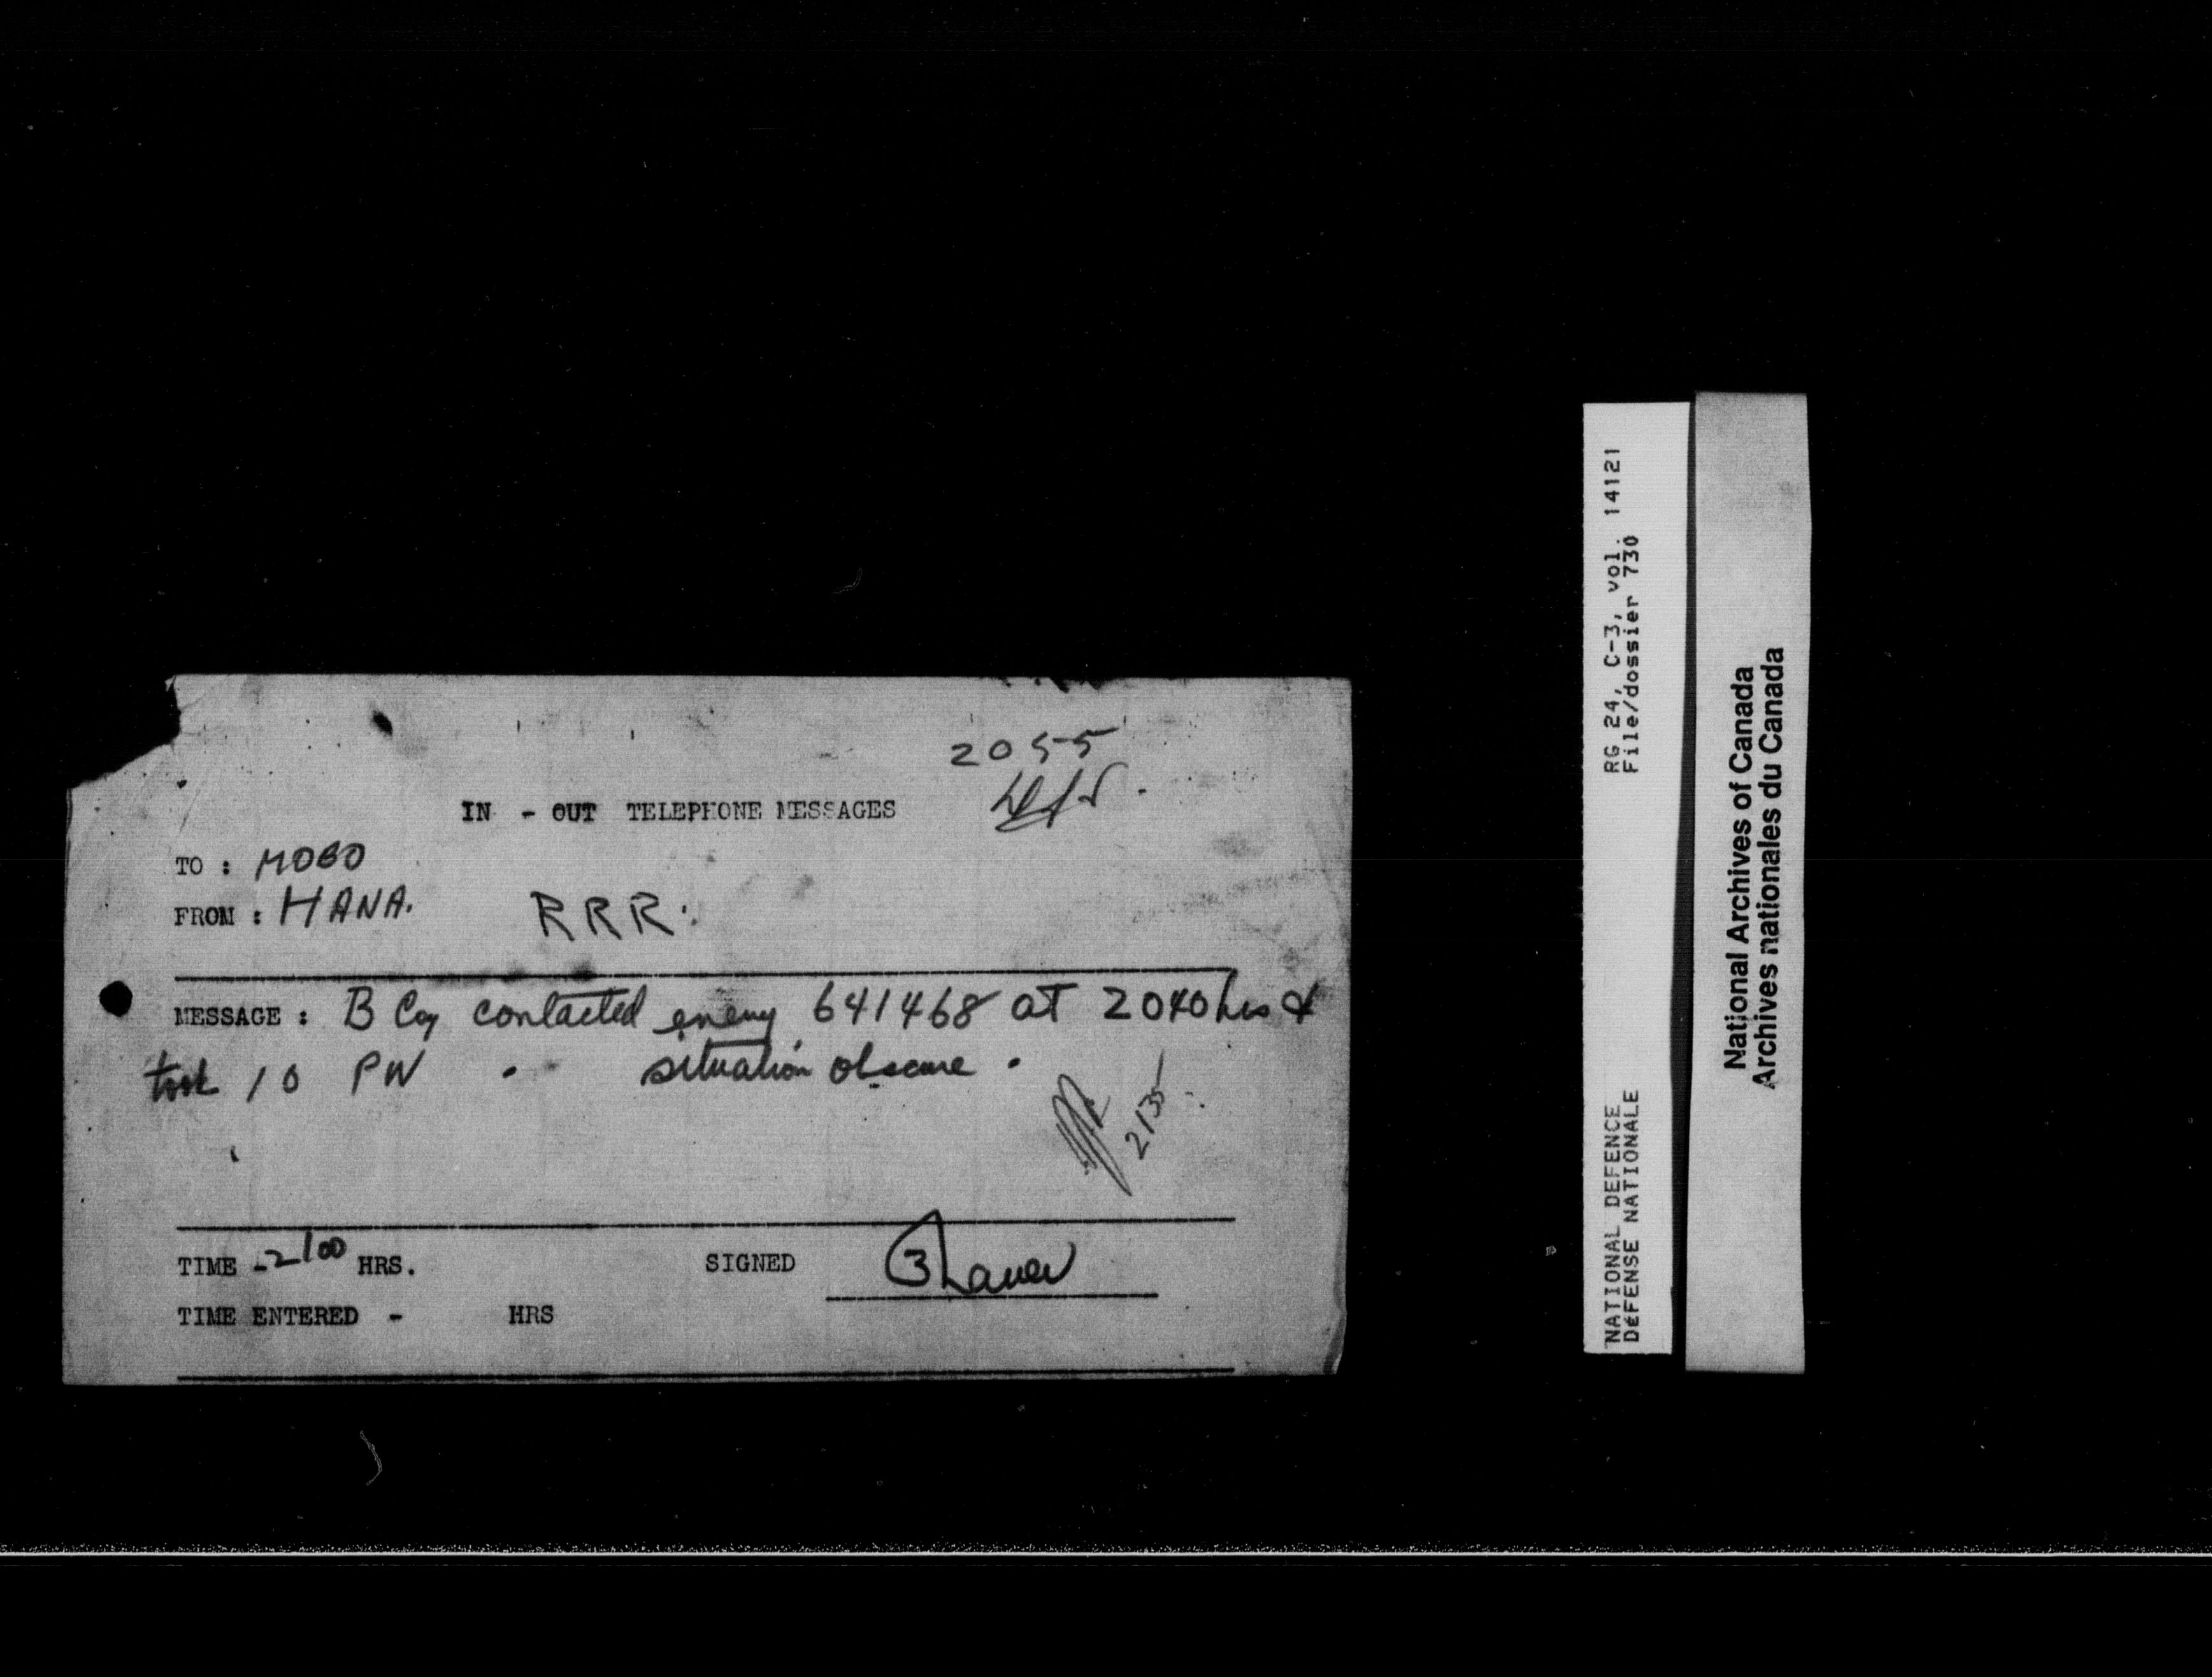 2055
IN - OUT TELEPHONE MESSAGES
TO : MOBO
FROM : HANA. RRR.
MESSAGE : B Coy contacted enemy 641468 at 2040 hrs &
took 10 PW . situation obscure .
2135
TIME - 2100 HRS. SIGNED
TIME ENTERED - HRS
RG 24, C-3, vol. 14121
File/dossier 730
NATIONAL DEFENCE
DéFENSE NATIONALE
National Archives of Canada
Archives nationales du Canada